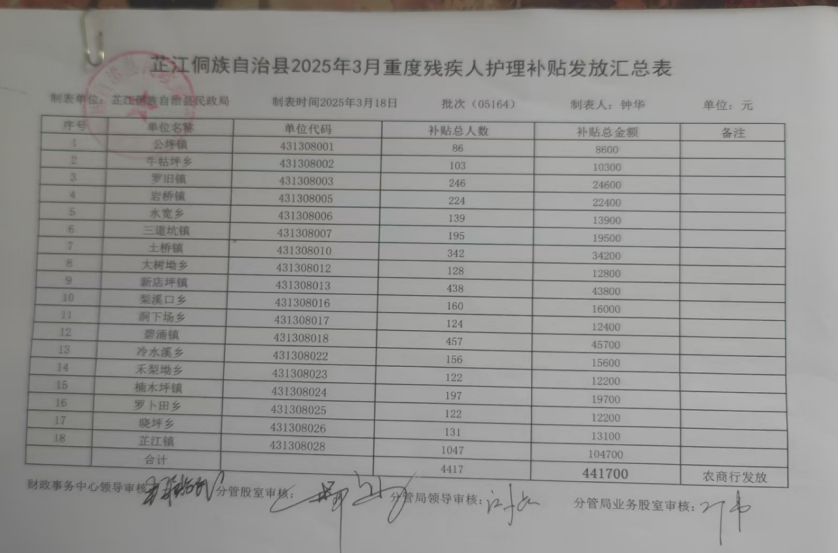 芷江侗族自治县2025年3月重度残疾人护理补贴发放汇总表
制表单位：芷江侗族自治县民政局 制表时间2025年3月18日 批次（05164） 制表人：钟华 单位：元
序号 单位名称 单位代码 补贴总人数 补贴总金额 备注
1 公坪镇 431308001 86 8600
2 牛牯坪乡 431308002 103 10300
3 罗旧镇 431308003 246 24600
4 岩桥镇 431308005 224 22400
5 水宽乡 431308006 139 13900
6 三道坑镇 431308007 195 19500
7 土桥镇 431308010 342 34200
8 大树坳乡 431308012 128 12800
9 新店坪镇 431308013 438 43800
10 梨溪口乡 431308016 160 16000
11 洞下场乡 431308017 124 12400
12 碧涌镇 431308018 457 45700
13 冷水溪乡 431308022 156 15600
14 禾梨坳乡 431308023 122 12200
15 楠木坪镇 431308024 197 19700
16 罗卜田乡 431308025 122 12200
17 晓坪乡 431308026 131 13100
18 芷江镇 431308028 1047 104700
合计 4417 441700 农商行发放
财政事务中心领导审核： 分管股室审核： 分管局领导审核： 分管局业务股室审核：